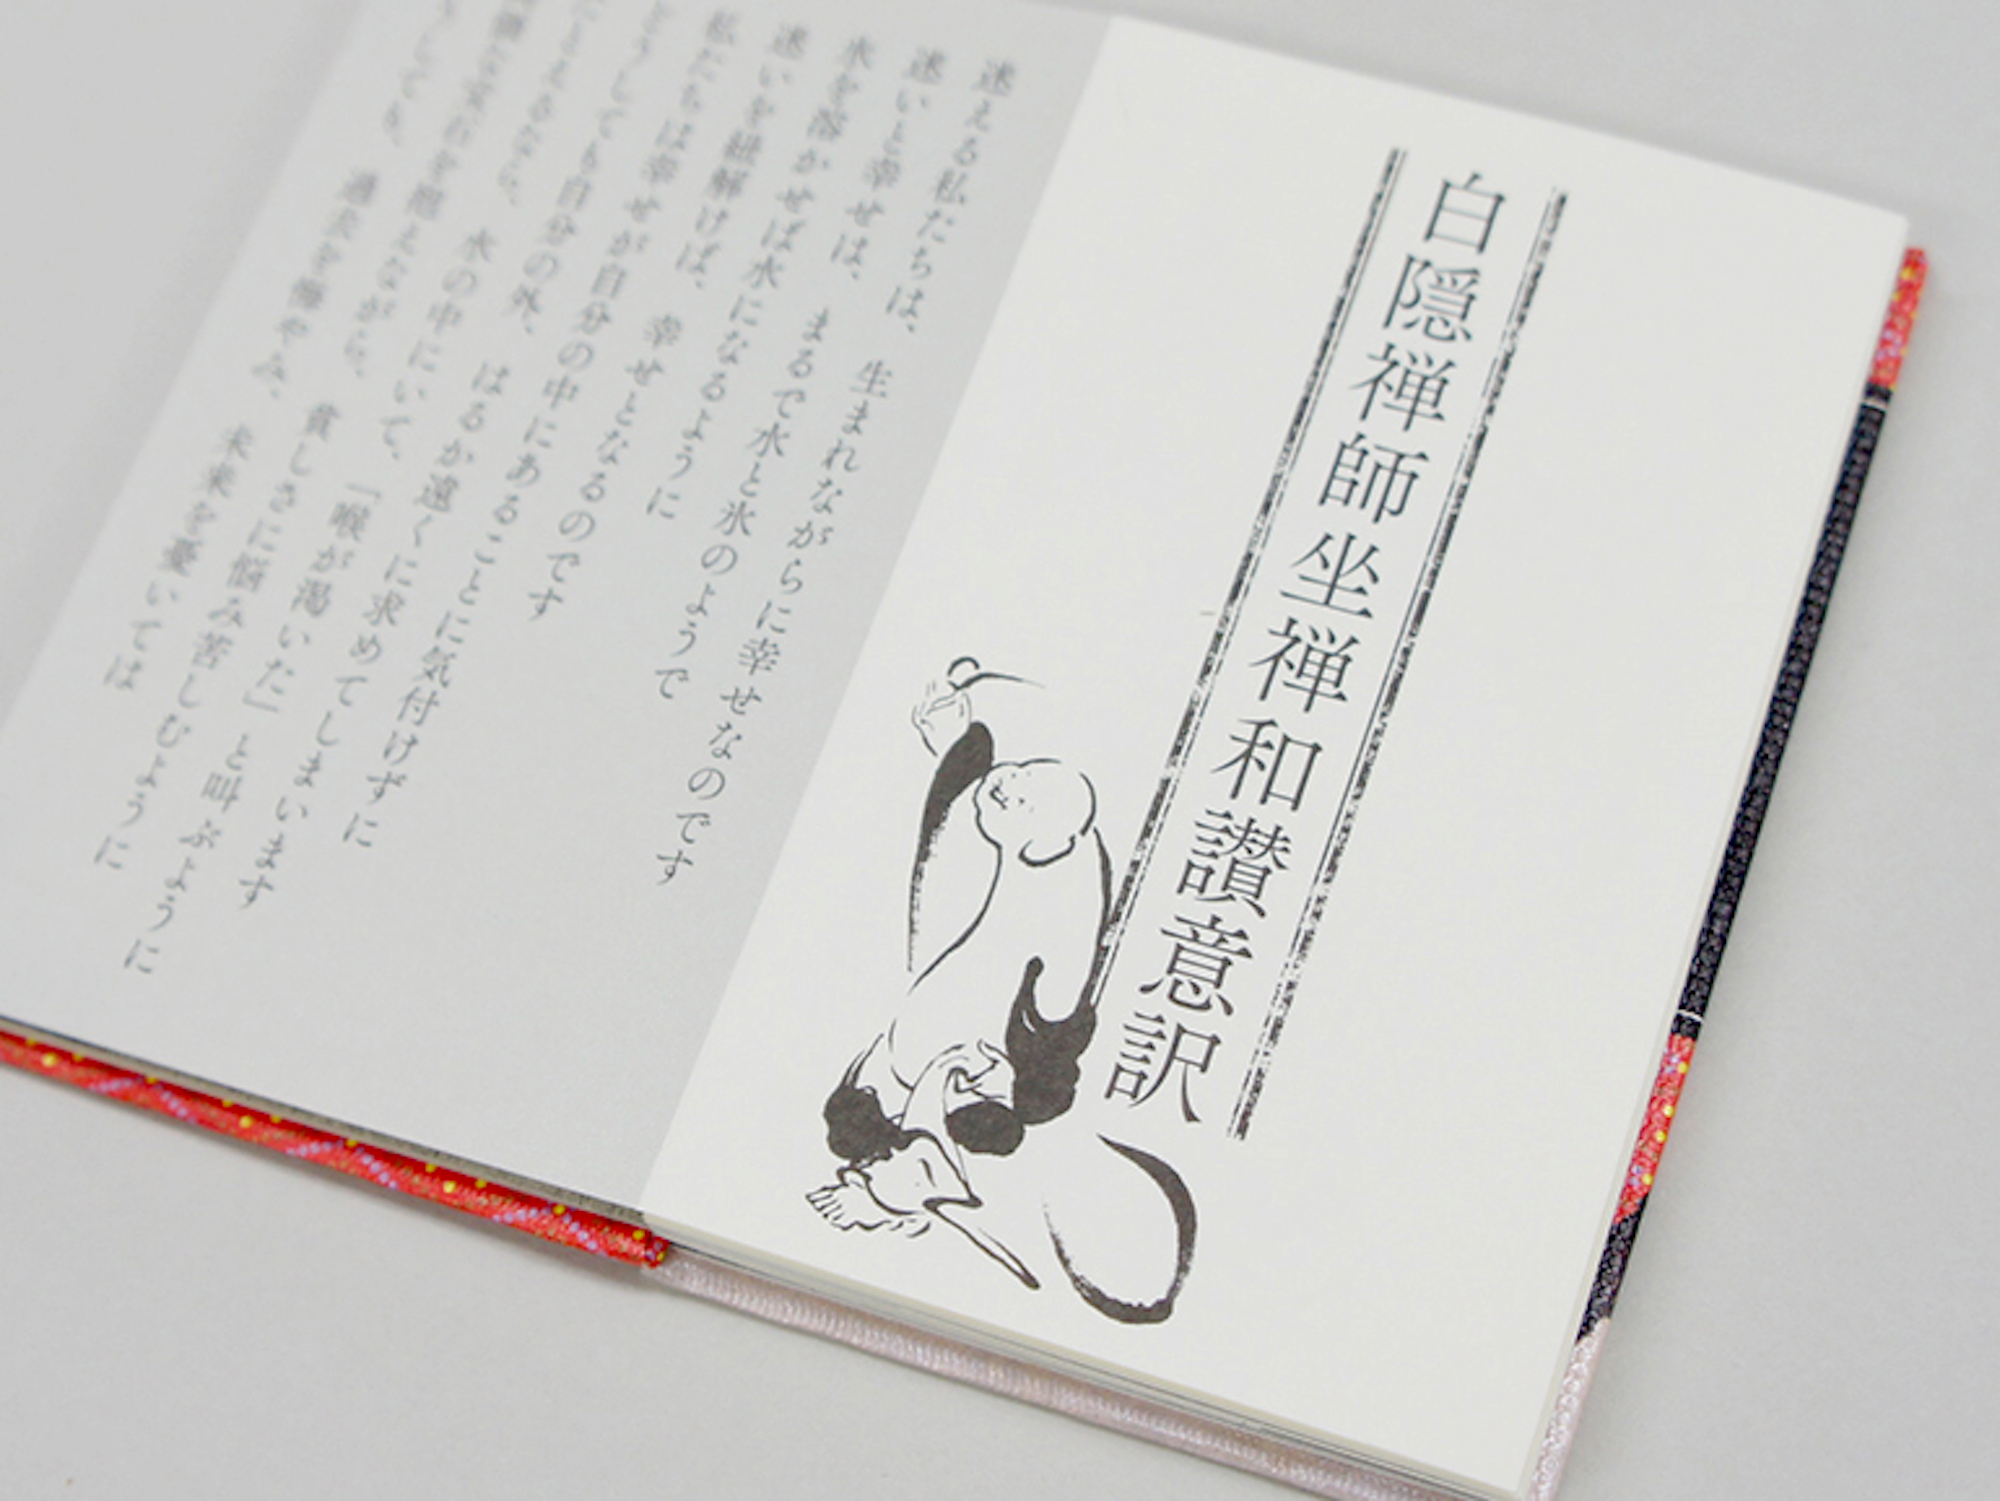 白隠禅師坐禅和讃意訳
迷える私たちは、生まれながらに幸せなのです
迷いと幸せは、まるで水と氷のようで
氷を溶かせば水になるように
迷いを紐解けば、幸せとなるのです
私たちは幸せが自分の中にあることに気付けずに
どうしても自分の外、はるか遠くに求めてしまいます
たとえるなら、水の中にいて、「喉が渇いた」と叫ぶように
ながら、貧しさに悩み苦しむように
しても、過去を悔やみ、未来を憂いては